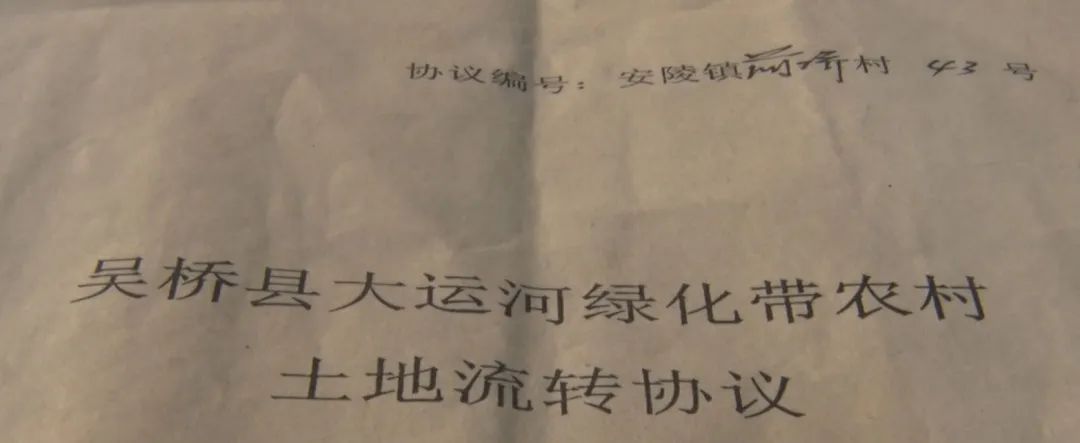 协议编号：安陵镇前桥村 43 号
吴桥县大运河绿化带农村
土地流转协议